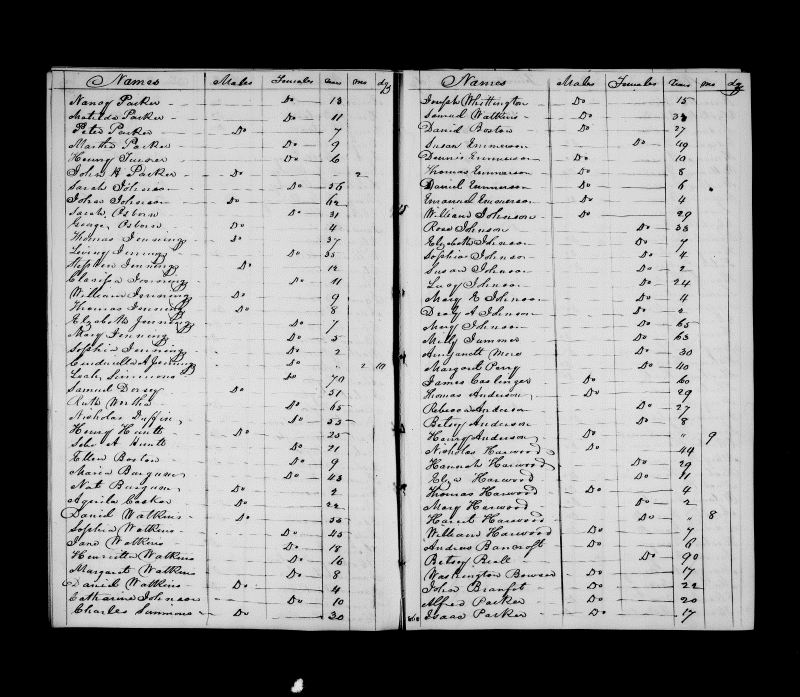 Names Males Females Years mo dy
Nancy Parker Do 13
Matilda Parker Do 11
Peter Parker Do 7
Martha Parker Do 9
Henry Turner Do 6
John H Parker Do 2
Sarah Johnson Do 56
John Johnson Do 62
Sarah Osborn Do 31
George Osborn Do 4
Thomas Jenning Do 37
Jenning Do 35
Stephen Jenning Do 12
Clarissa Jenning Do 11
William Jenning Do 9
Thomas Jenning Do 8
Elizabeth Jenning Do 7
Mary Jenning Do 5
Sophia Jenning Do 2
Jenning Do 2 10
Leah Simmons Do 70
Samuel Dorsey Do 51
Ruth Do 65
Nicholas Do 55
Henry Do 25
A Do 21
Ellen Boston Do 9
Maria Do 43
Nat Do 2
Aquila Do 22
Daniel Watkins Do 55
Sophia Watkins Do 45
Jane Watkins Do 18
Henrietta Watkins Do 16
Margaret Watkins Do 8
Daniel Watkins Do 4
Catharine Johnson Do 10
Charles Simmons Do 30
Names Males Females Years mo dy
Joseph Whittington Do 15
Samuel Watkins Do
David Boston Do 27
Susan Emmerson Do 49
Dennis Emmerson Do 10
Thomas Emmerson Do 8
Daniel Emmerson Do 6
Emanuel Emmerson Do 4
William Johnson Do 29
Rose Johnson Do 33
Elizabeth Johnson Do 7
Sophia Johnson Do 4
Susan Johnson Do 2
Lucy Johnson Do 24
Mary E Johnson Do 4
A Johnson Do 2
Mary Johnson Do 65
Milly Do 63
Do 30
Margaret Perry Do 40
James Do 60
Thomas Anderson Do 29
Rebecca Anderson Do 27
Betsy Anderson Do 8
Henry Anderson Do " 9
Nicholas Harwood Do 44
Hannah Harwood Do 29
Eliza Harwood Do 11
Thomas Harwood Do 4
Mary Harwood Do 2
Harriet Harwood Do " 8
William Harwood Do 7
Andrew Bancroft Do 6
Betsey Do 90
Washington Bowser Do 17
John Do 22
Alfred Parker Do 20
Isaac Parker Do 17